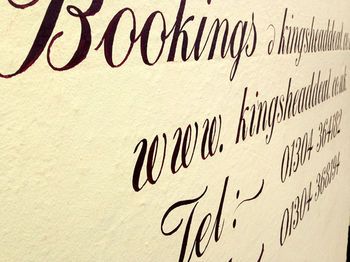 Bookings @ kingsheaddeal.co
www. kingsheaddeal.co.uk
Tel:~ 01304 364182
01304 368194